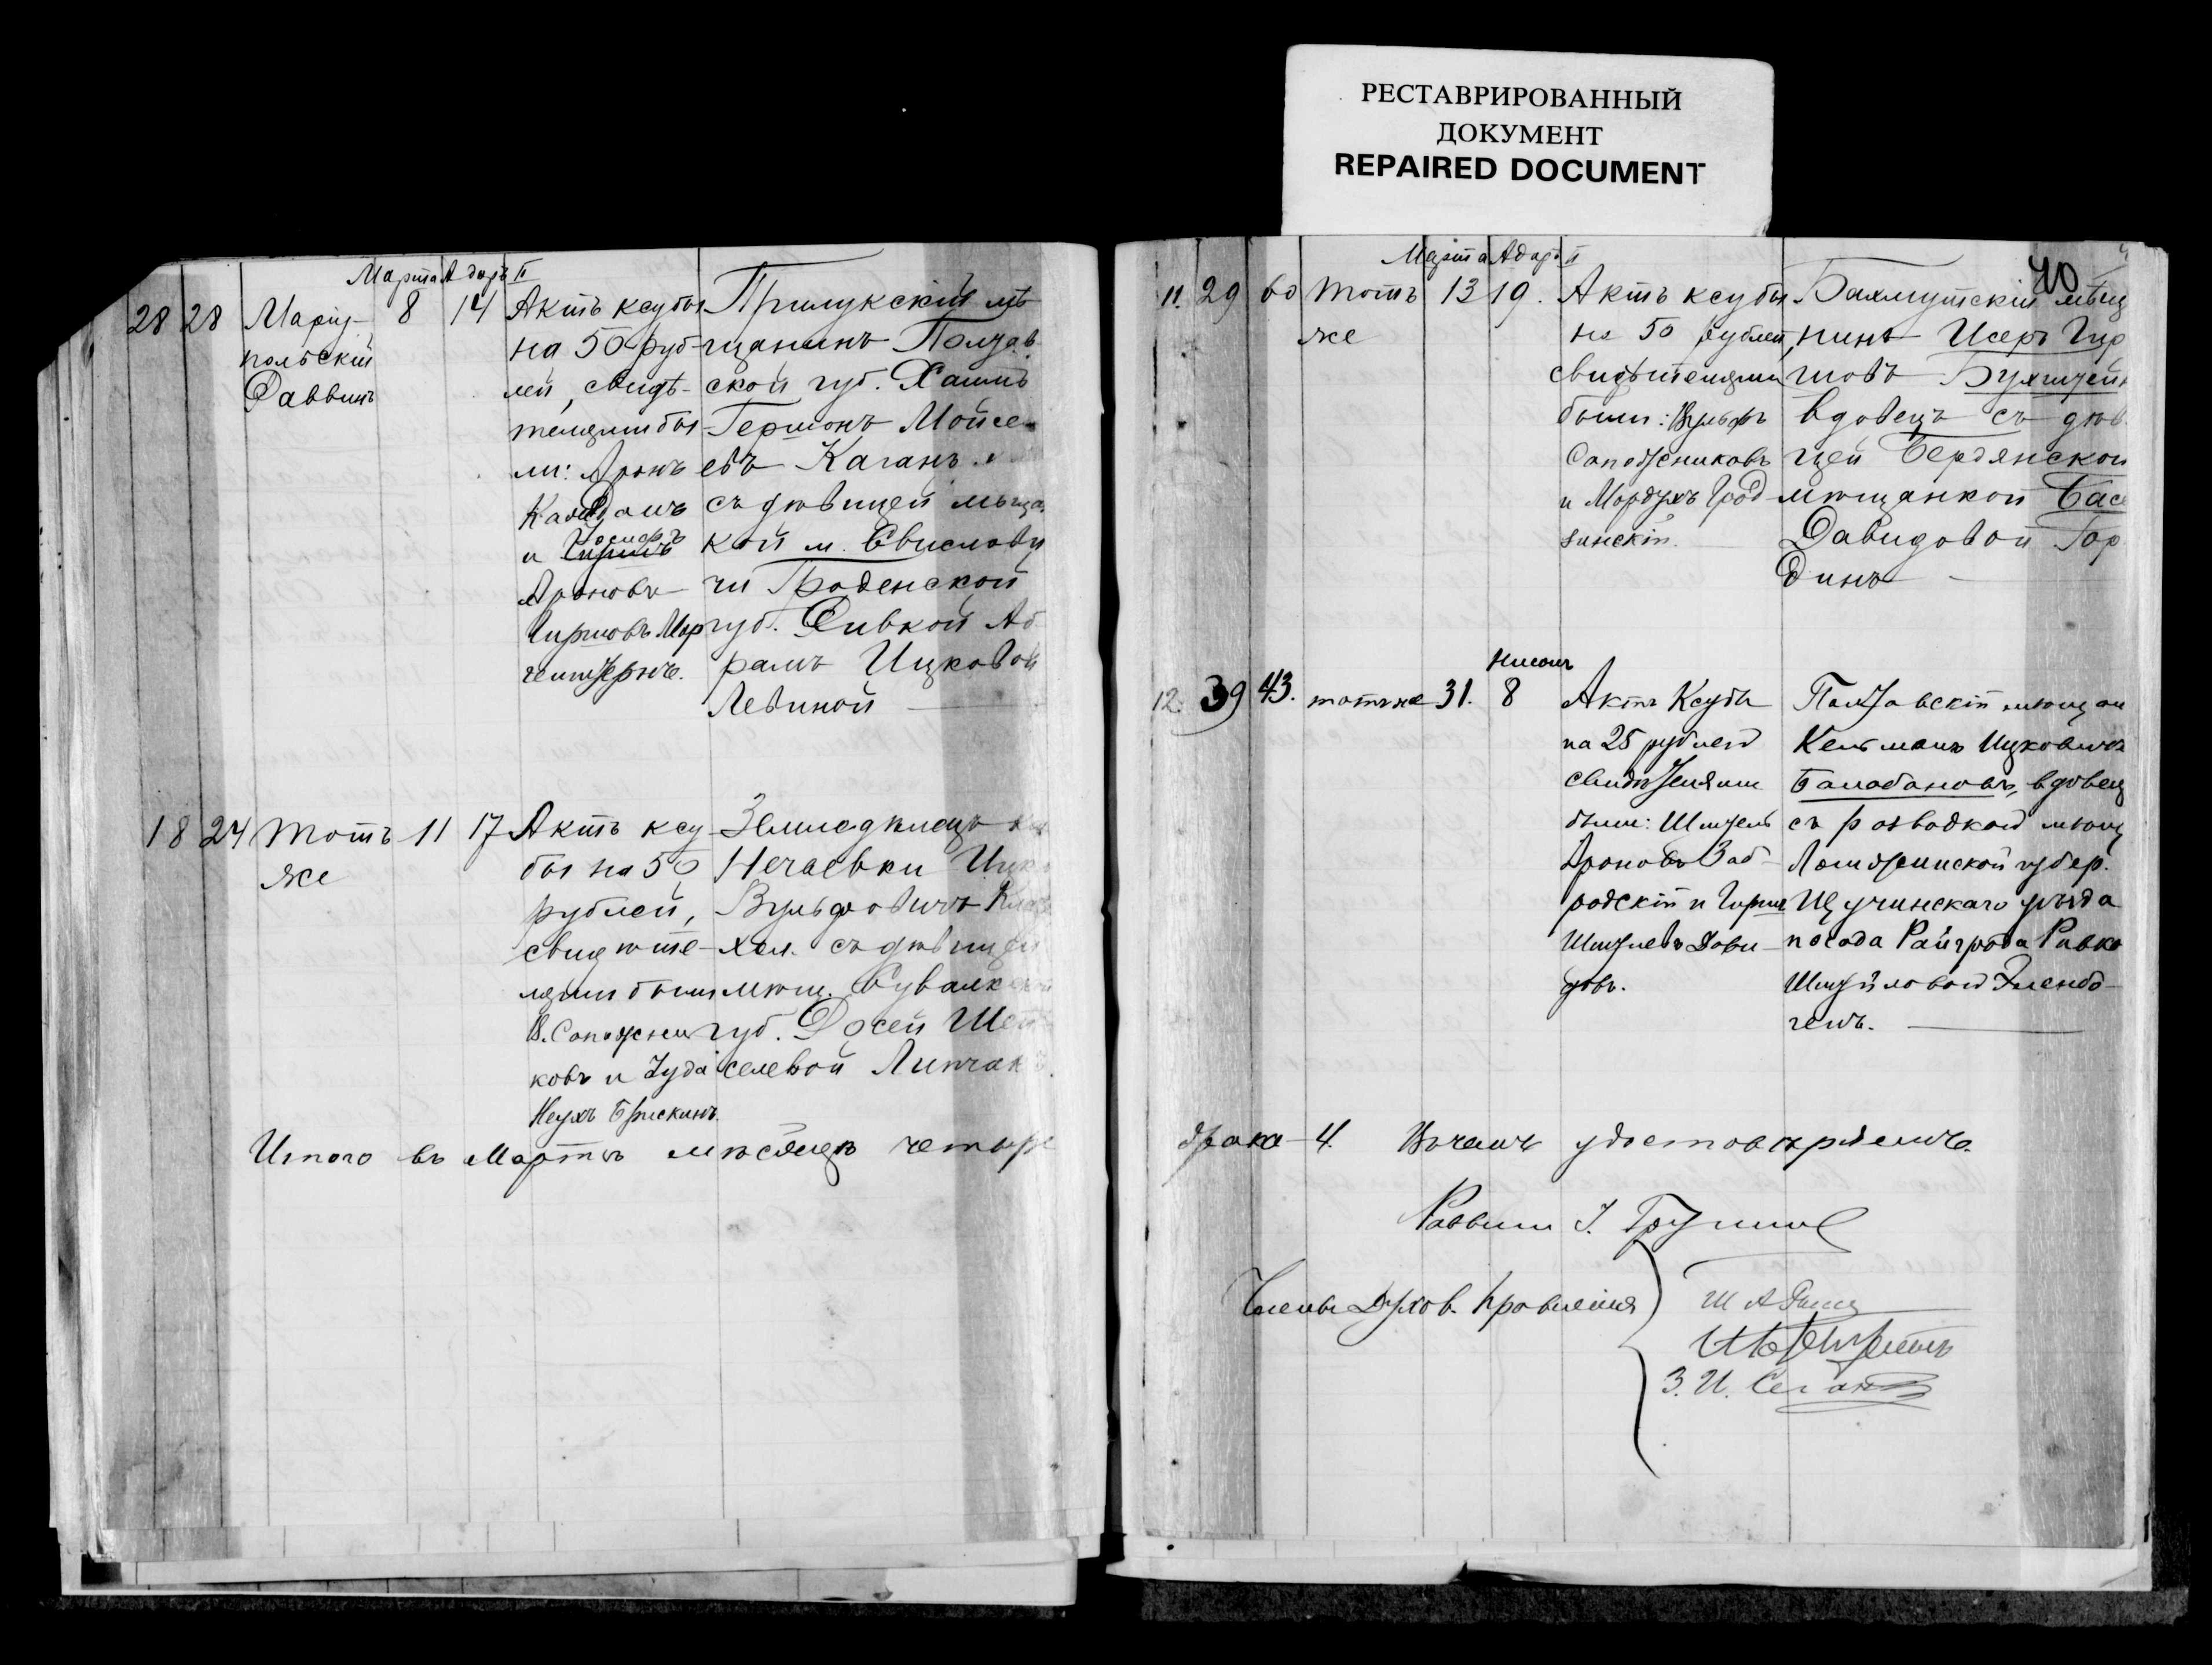 РЕСТАВРИРОВАННЫЙ
ДОКУМЕНТ
REPAIRED DOCUMENT
Марта Адаръ II
28 28 Маріу-
польскій
Раввинъ
8 14
Актъ ксубы
на 50 руб-
лей, свидѣ-
телями бы-
ли: Аронъ
и Іосифъ
Ароновъ
Прилукскій мѣ-
щанинъ Полтав
ской губ. Хаимъ
Гершонъ Мойсе-
евъ Каганъ
съ дѣвицей мѣща
кой м. Свислови
чи Гродненской
губ. Ривкой Аб
рамъ Ицковой
Левиной
18 24 Тотъ
же
11 17
Актъ ксу-
бы на 50
рублей,
свидѣте-
лями были
В. Сапожни
ковъ и Іуда
Брискинъ.
Земледѣлецъ
Нечаевки
Вульфовичъ
съ дѣвицей
мѣщ. Сувалк
губ. Досей Шей
селевой Литчак
Итого въ Мартѣ мѣсяцѣ четыре
40
Марта Адаръ II
11. 29 60 Тотъ
же
13 19.
Актъ ксубы
на 50 рублей,
свидѣтелями
были: Вульфъ
Сапожниковъ
и Мордухъ Грод
зинскій.
Бахмутскій мѣщ
нинъ Исеръ Гир
шовъ
вдовецъ съ дѣв
цей Бердянской
мѣщанкой Бас
Давидовой Гор
динъ
Нисанъ
12. 39 43. тотъ же 31. 8
Актъ Ксубы
на 25 рублей
свидѣтелями
были: Шмуель
Ароновъ Заб-
родскій и Гирш
Шмулевъ Дави-
довъ.
Полтавскій мѣщан
Кельманъ Ицковичъ
Балабановъ, вдовец
съ разводкой мѣщ
Ломжинской губер.
Щучинскаго уѣзда
посада Райгрода Ривка
Шмуйловой
брака 4. Въ чемъ удостовѣряемъ.
Раввинъ
Члены Духов. Правленія
З. И.